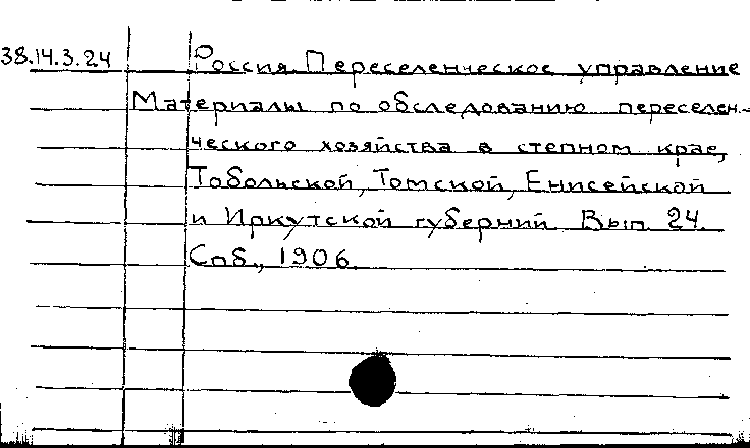 38.14.3.24 Россия. Переселенческое управление
Материалы по обследованию переселен-
ческого хозяйства в степном крае,
Тобольской, Томской, Енисейской
и Иркутской губерний. Вып. 24.
Спб., 1906.